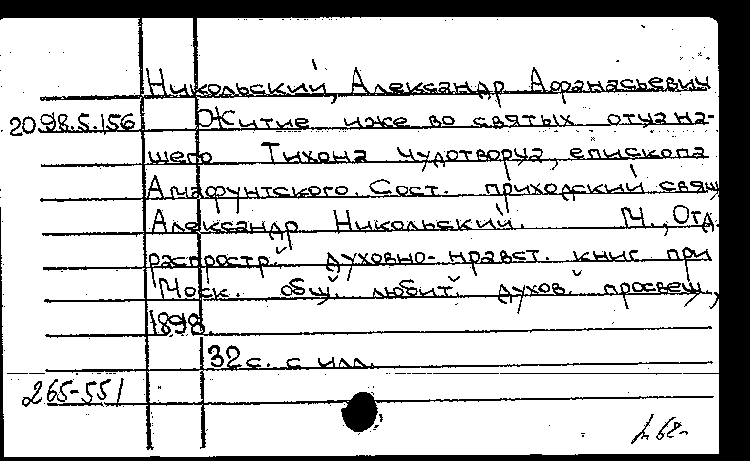 Никольский, Александр Афанасьевич
20.98.5.156 Житие иже во святых отца на-
шего Тихона чудотворца, епископа
Амафунтского. Сост. приходский свящ.
Александр Никольский. М., Отд.
распростр. духовно-нравст. книг при
Моск. общ. любит. духов. просвещ.,
1898.
32 с. с илл.
265-551